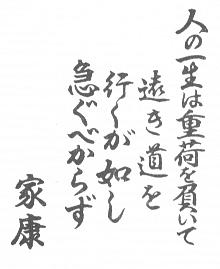 人の一生は重荷を負いて
遠き道を
行くが如し
急ぐべからず
家康